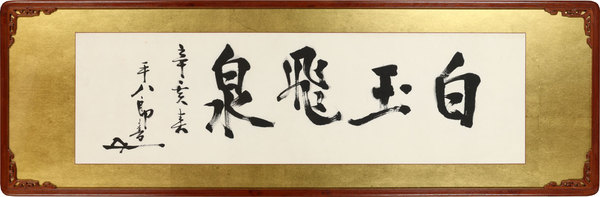 白玉飛泉
辛亥春
平八郎書